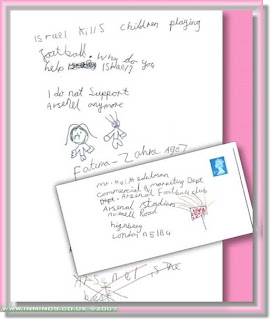 israel kills children playing
football. Why do you
help israel?
I do not support
Arsenal anymore
Fatima-Zahra Age 7
Mr. Keith edelman
commercial & marketing Dept
Dept. Arsenal Football club
Arsenal stadium
Avenell Road
highbury
London N5 1BU
Arsenal is the
best
WWW.INMINDS.CO.UK ©2007